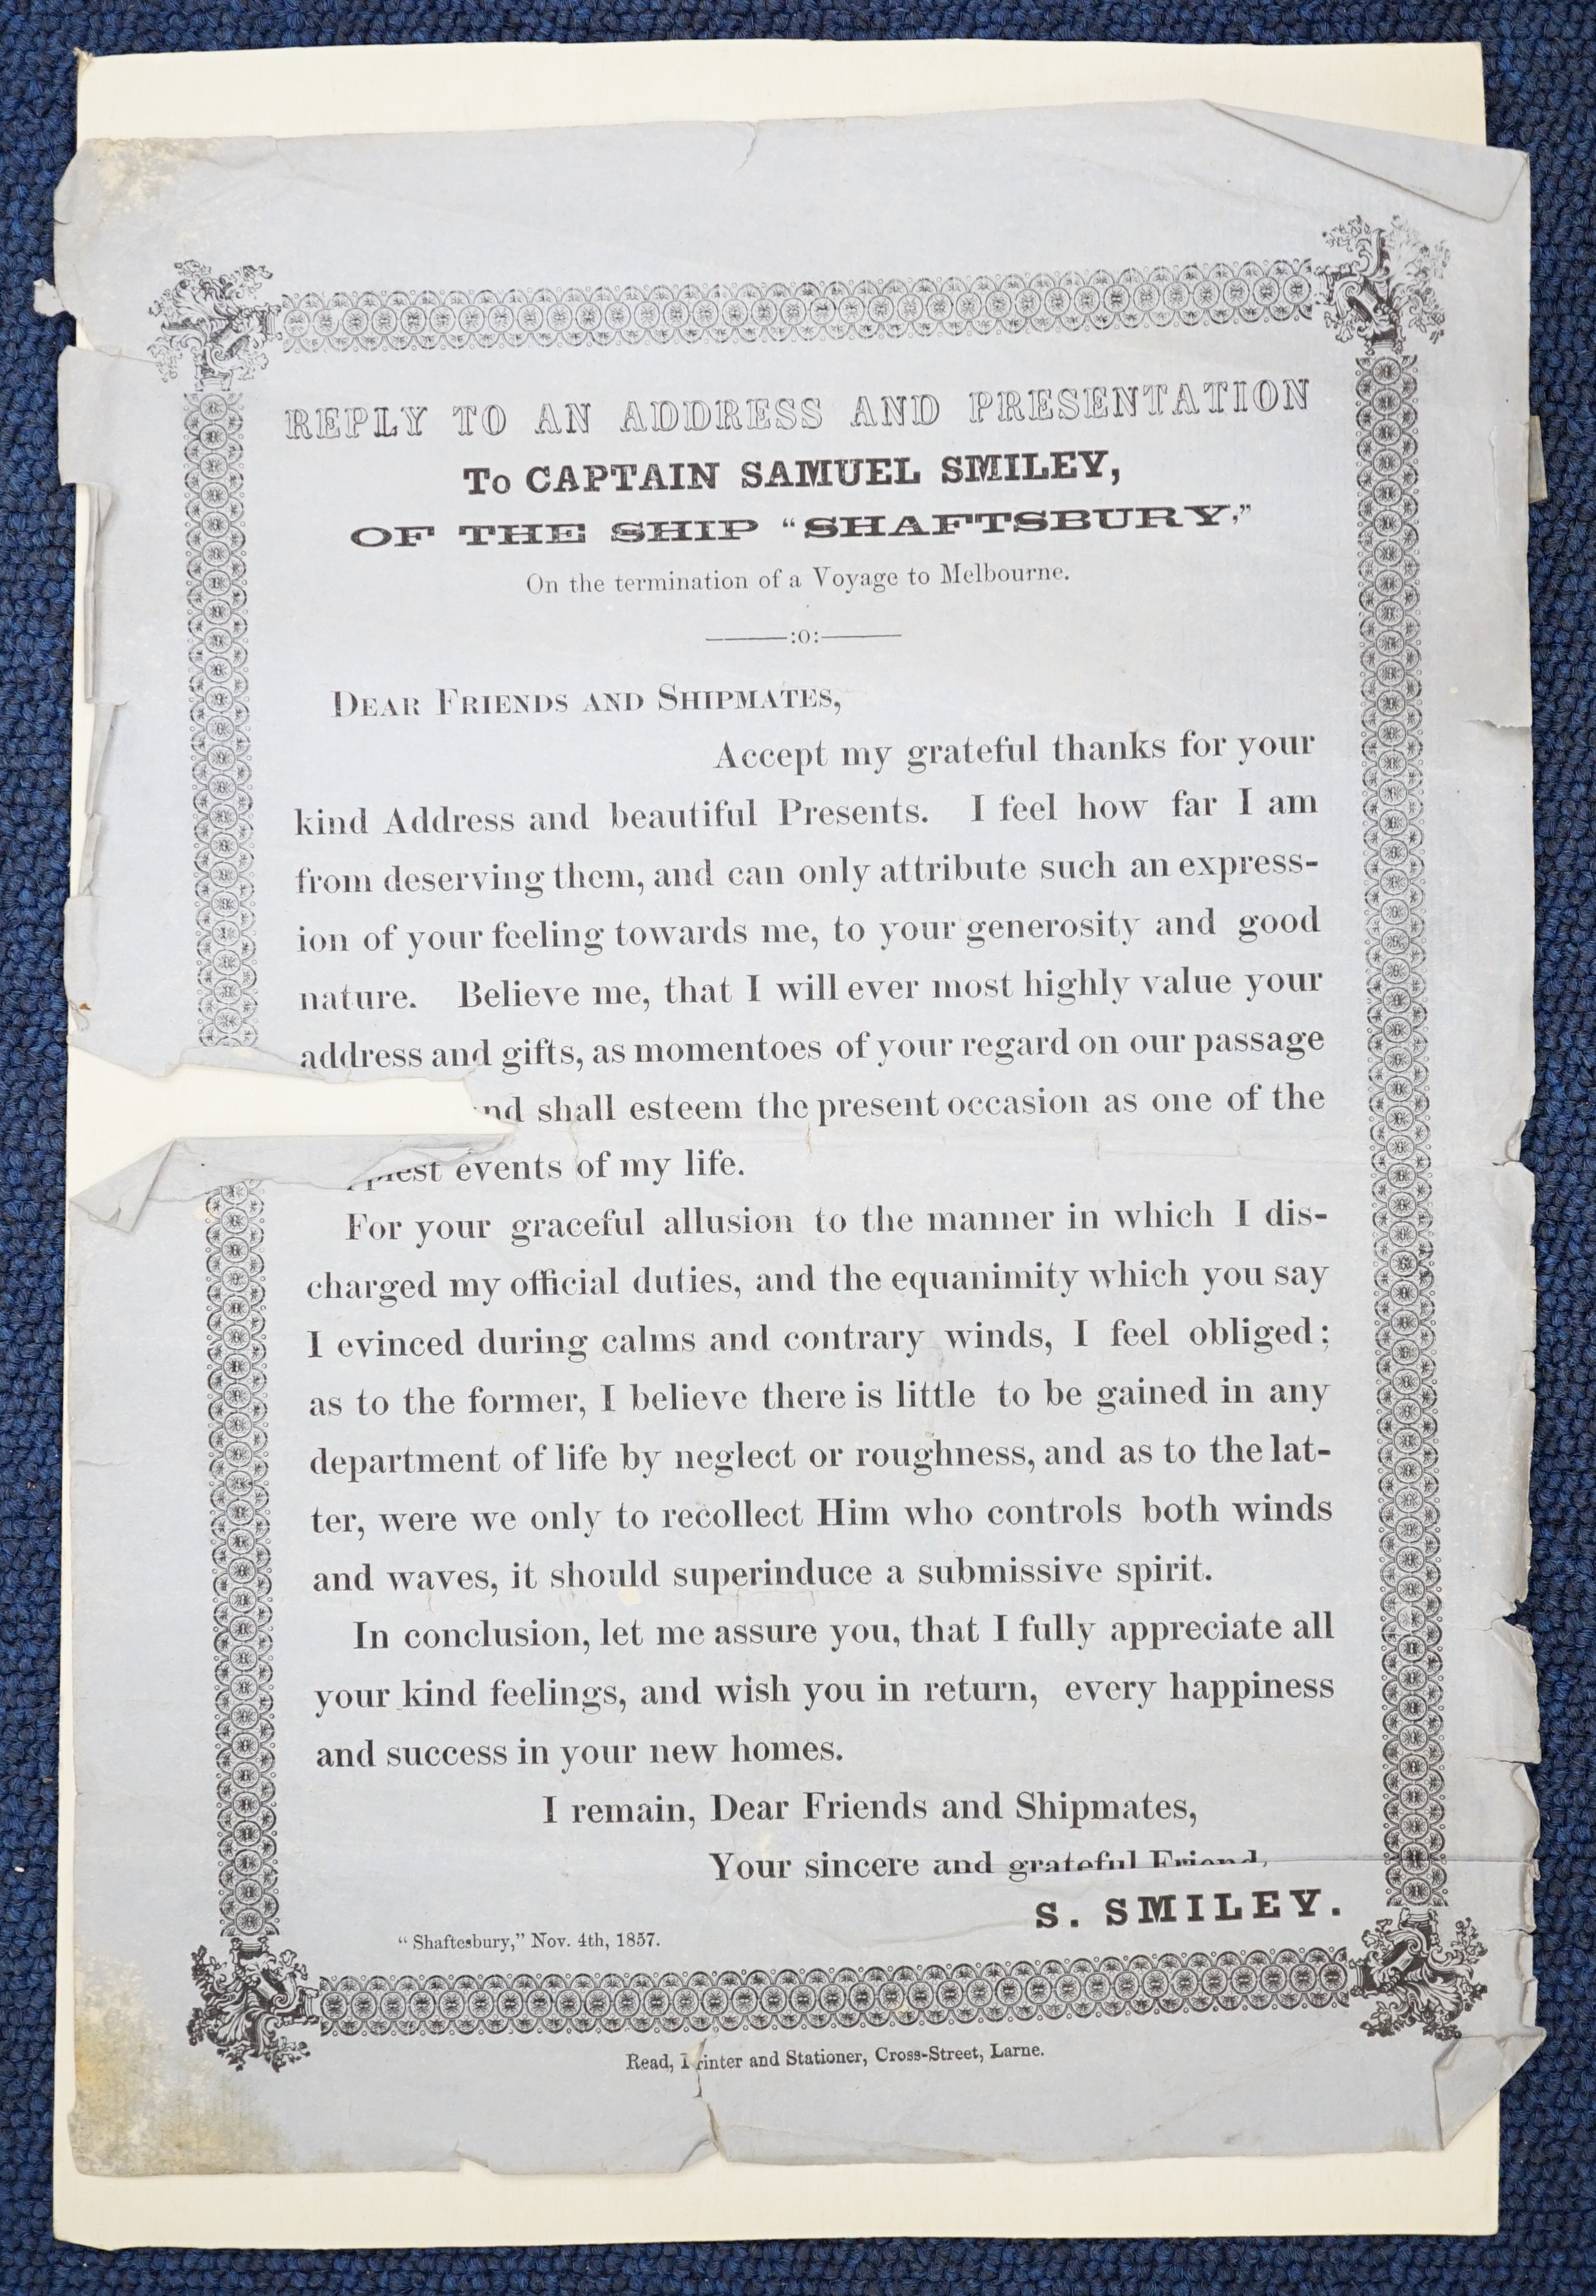 REPLY TO AN ADDRESS AND PRESENTATION
To CAPTAIN SAMUEL SMILEY,
OF THE SHIP "SHAFTSBURY,"
On the termination of a Voyage to Melbourne.
———:o:———
DEAR FRIENDS AND SHIPMATES,
Accept my grateful thanks for your
kind Address and beautiful Presents. I feel how far I am
from deserving them, and can only attribute such an express-
ion of your feeling towards me, to your generosity and good
nature. Believe me, that I will ever most highly value your
address and gifts, as momentoes of your regard on our passage
shall esteem the present occasion as one of the
events of my life.
For your graceful allusion to the manner in which I dis-
charged my official duties, and the equanimity which you say
I evinced during calms and contrary winds, I feel obliged;
as to the former, I believe there is little to be gained in any
department of life by neglect or roughness, and as to the lat-
ter, were we only to recollect Him who controls both winds
and waves, it should superinduce a submissive spirit.
In conclusion, let me assure you, that I fully appreciate all
your kind feelings, and wish you in return, every happiness
and success in your new homes.
I remain, Dear Friends and Shipmates,
Your sincere and grateful Friend,
S. SMILEY.
"Shaftesbury," Nov. 4th, 1857.
Read, Printer and Stationer, Cross-Street, Larne.